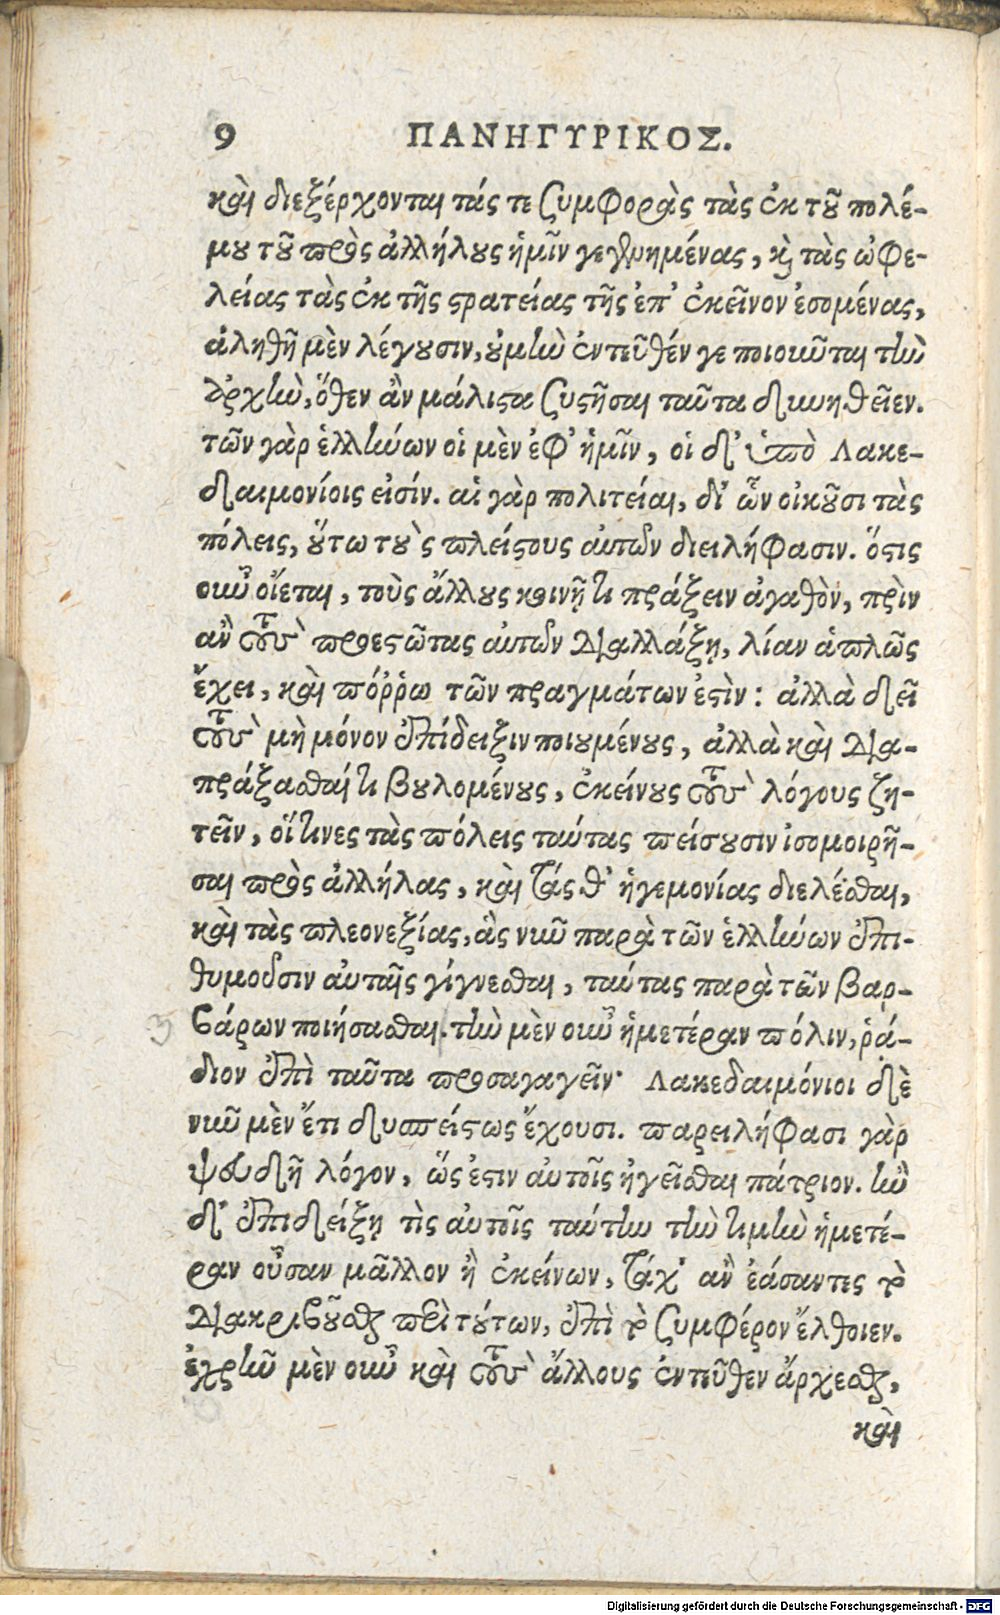 9 ΠΑΝΗΓΥΡΙΚΟΣ.
καὶ διεξέρχονται τάς τε συμφορὰς τὰς ἐκ τοῦ πολέ-
μου τοῦ πρὸς ἀλλήλους ἡμῖν γεγενημένας, καὶ τὰς ὠφε-
λείας τὰς ἐκ τῆς στρατείας τῆς ἐπ' ἐκεῖνον ἐσομένας,
ἀληθῆ μὲν λέγουσιν, οὐ μὴν ἐντεῦθέν γε ποιοῦνται τὴν
ἀρχὴν, ὅθεν ἂν μάλιστα συστῆσαι ταῦτα δυνηθεῖεν.
τῶν γὰρ ἑλλήνων οἱ μὲν ἐφ' ἡμῖν, οἱ δ' ὑπὸ Λακε-
δαιμονίοις εἰσίν. αἱ γὰρ πολιτείαι, δι' ὧν οἰκοῦσι τὰς
πόλεις, οὕτω τοὺς πλείστους αὐτῶν διειλήφασιν. ὅστις
οὖν οἴεται, τοὺς ἄλλους κοινῇ τι πράξειν ἀγαθὸν, πρὶν
ἂν τοὺς προεστῶτας αὐτῶν διαλλάξῃ, λίαν ἁπλῶς
ἔχει, καὶ πόῤῥω τῶν πραγμάτων ἐστὶν: ἀλλὰ δεῖ
τοὺς μὴ μόνον ἐπίδειξιν ποιουμένους, ἀλλὰ καὶ δια-
πράξασθαί τι βουλομένους, ἐκείνους τοὺς λόγους ζη-
τεῖν, οἵτινες τὰς πόλεις ταύτας πείσουσιν ἰσομοιρῆ-
σαι πρὸς ἀλλήλας, καὶ τάς θ' ἡγεμονίας διελέσθαι,
καὶ τὰς πλεονεξίας, ἃς νῦν παρὰ τῶν ἑλλήνων ἐπι-
θυμοῦσιν αὐταῖς γίγνεσθαι, ταύτας παρὰ τῶν βαρ-
βάρων ποιήσασθαι. τὴν μὲν οὖν ἡμετέραν πόλιν, ῥά-
διον ἐπὶ ταῦτα προσαγαγεῖν· Λακεδαιμόνιοι δὲ
νῦν μὲν ἔτι δυσπείστως ἔχουσι. παρειλήφασι γὰρ
ψευδῆ λόγον, ὥς ἐστιν αὐτοῖς ἡγεῖσθαι πάτριον. ἢν
δ' ἐπιδείξῃ τὶς αὐτοῖς ταύτην τὴν τιμὴν ἡμετέ-
ραν οὖσαν μᾶλλον ἢ ἐκείνων, τάχ' ἂν ἐάσαντες τὸ
διακριβοῦσθαι περὶ τούτων, ἐπὶ τὸ συμφέρον ἔλθοιεν.
ἐχρῆν μὲν οὖν καὶ τοὺς ἄλλους ἐντεῦθεν ἄρχεσθαι,
καὶ
Digitalisierung gefördert durch die Deutsche Forschungsgemeinschaft - DFG